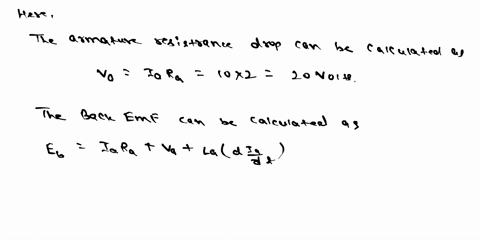 Here,
The armature resistance drop can be calculated as
V₀ = I₀ Rₐ = 10 × 2 = 20 Volts.
The Back EmF can be calculated as
E_b = Iₐ Rₐ + Vₐ + Lₐ ( d Iₐ / d t )